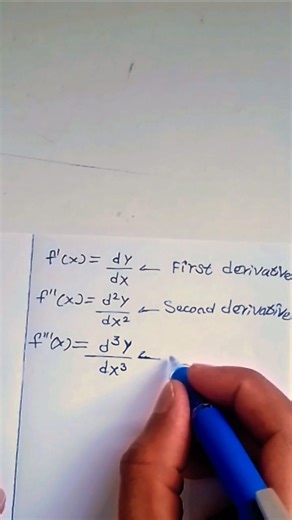 f'(x) = dy/dx ← First derivative
f''(x) = d²y/dx² ← Second derivative
f'''(x) = d³y/dx³ ←